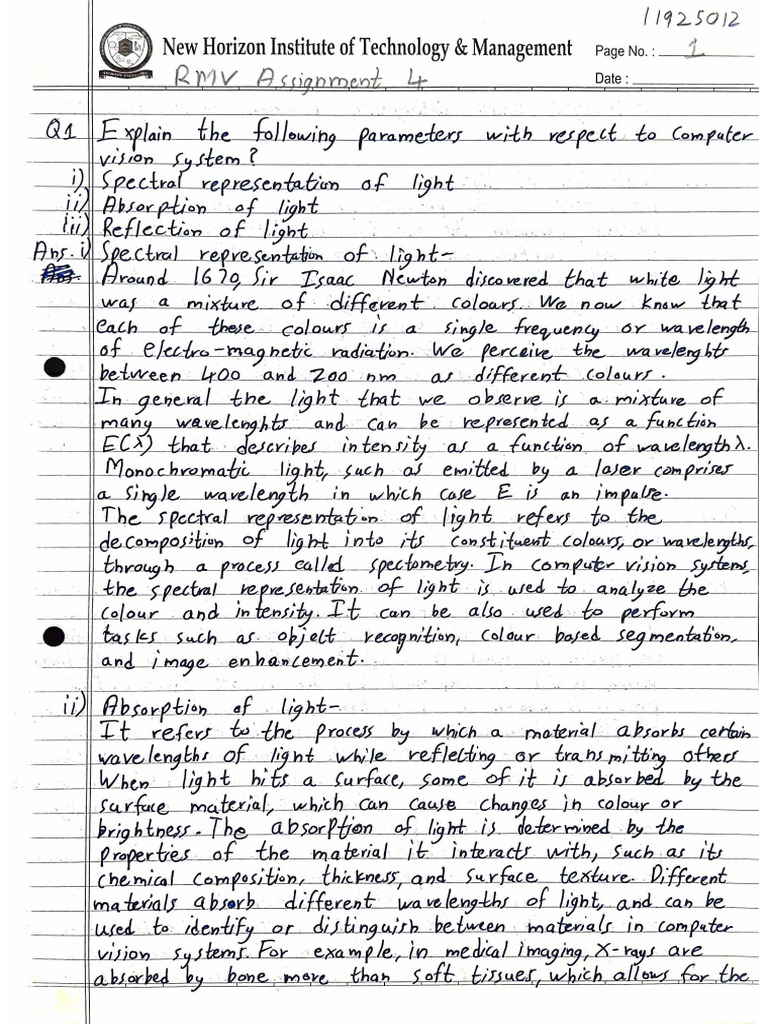 11925012
New Horizon Institute of Technology & Management
Page No. : 1
RMV Assignment 4
Date :
Q1 Explain the following parameters with respect to computer
vision system?
i) Spectral representation of light
ii) Absorption of light
iii) Reflection of light
Ans. i) Spectral representation of light-
Around 1670, Sir Isaac Newton discovered that white light
was a mixture of different colours. We now know that
each of these colours is a single frequency or wavelength
of electro-magnetic radiation. We perceive the wavelenghts
between 400 and 700 nm as different colours.
In general the light that we observe is a mixture of
many wavelenghts and can be represented as a function
E(λ) that describes intensity as a function of wavelength λ.
Monochromatic light, such as emitted by a laser comprises
a single wavelength in which case E is an impulse.
The spectral representation of light refers to the
decomposition of light into its constituent colours, or wavelengths,
through a process called spectometry. In computer vision systems,
the spectral representation of light is used to analyze the
colour and intensity. It can be also used to perform
tasks such as object recognition, colour based segmentation,
and image enhancement.
ii) Absorption of light-
It refers to the process by which a material absorbs certain
wavelengths of light while reflecting or transmitting others
When light hits a surface, some of it is absorbed by the
surface material, which can cause changes in colour or
brightness. The absorption of light is determined by the
properties of the material it interacts with, such as its
chemical composition, thickness, and surface texture. Different
materials absorb different wavelengths of light, and can be
used to identify or distinguish between materials in computer
vision systems. For example, in medical imaging, X-rays are
absorbed by bone more than soft tissues, which allows for the